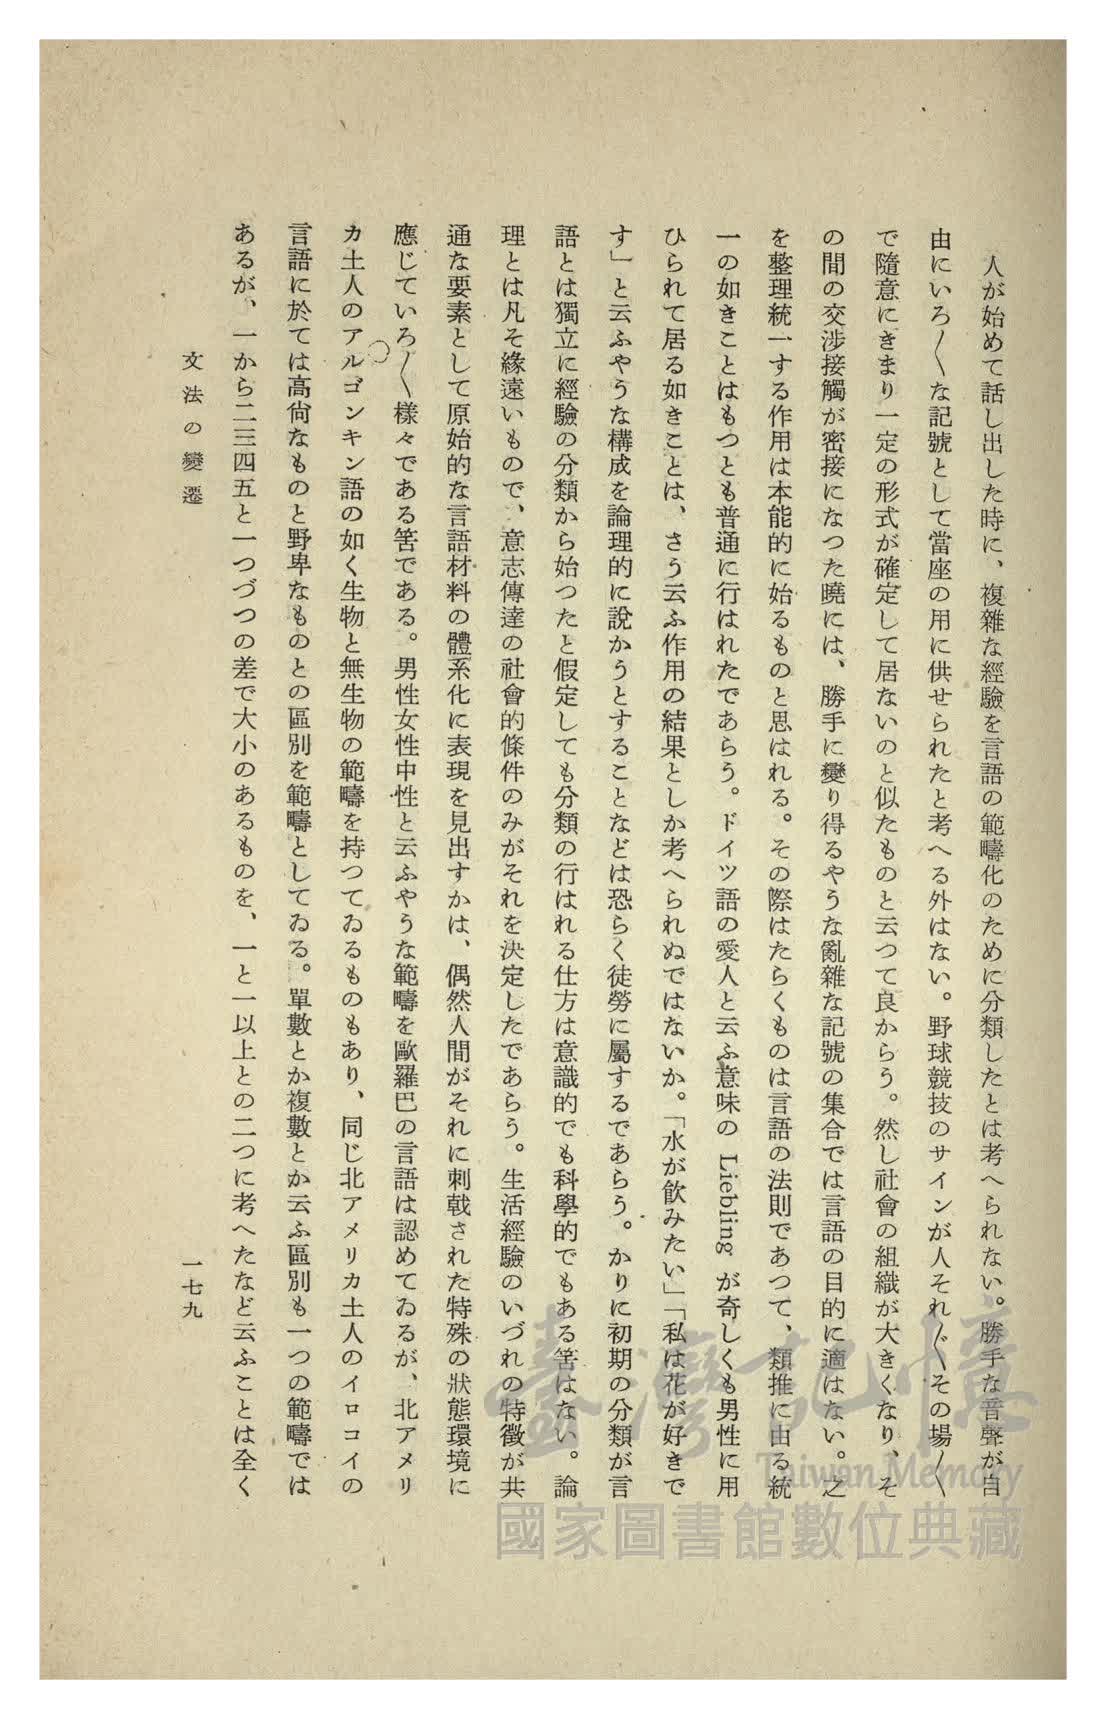 人が始めて話し出した時に、複雜な經驗を言語の範疇化のために分類したとは考へられない。勝手な音聲が自
由にいろ〳〵な記號として當座の用に供せられたと考へる外はない。野球競技のサインが人それ〴〵その場〳〵
で隨意にきまり一定の形式が確定して居ないのと似たものと云つて良からう。然し社會の組織が大きくなり、そ
の間の交涉接觸が密接になつた曉には、勝手に變り得るやうな亂雜な記號の集合では言語の目的に適はない。之
を整理統一する作用は本能的に始るものと思はれる。その際はたらくものは言語の法則であつて、類推に由る統
一の如きことはもつとも普通に行はれたであらう。ドイツ語の愛人と云ふ意味の Liebling が奇しくも男性に用
ひられて居る如きことは、さう云ふ作用の結果としか考へられぬではないか。「水が飮みたい」「私は花が好きで
す」と云ふやうな構成を論理的に說かうとすることなどは恐らく徒勞に屬するであらう。かりに初期の分類が言
語とは獨立に經驗の分類から始つたと假定しても分類の行はれる仕方は意識的でも科學的でもある筈はない。論
理とは凡そ緣遠いもので、意志傳達の社會的條件のみがそれを決定したであらう。生活經驗のいづれの特徵が共
通な要素として原始的な言語材料の體系化に表現を見出すかは、偶然人間がそれに刺戟された特殊の狀態環境に
應じていろ〳〵樣々である筈である。男性女性中性と云ふやうな範疇を歐羅巴の言語は認めてゐるが、北アメリ
カ土人のアルゴンキン語の如く生物と無生物の範疇を持つてゐるものもあり、同じ北アメリカ土人のイロコイの
言語に於ては高尙なものと野卑なものとの區別を範疇としてゐる。單數とか複數とか云ふ區別も一つの範疇では
あるが、一から二三四五と一つづつの差で大小のあるものを、一と一以上との二つに考へたなど云ふことは全く
文法の變遷
一七九
臺灣記憶
Taiwan Memory
國家圖書館數位典藏